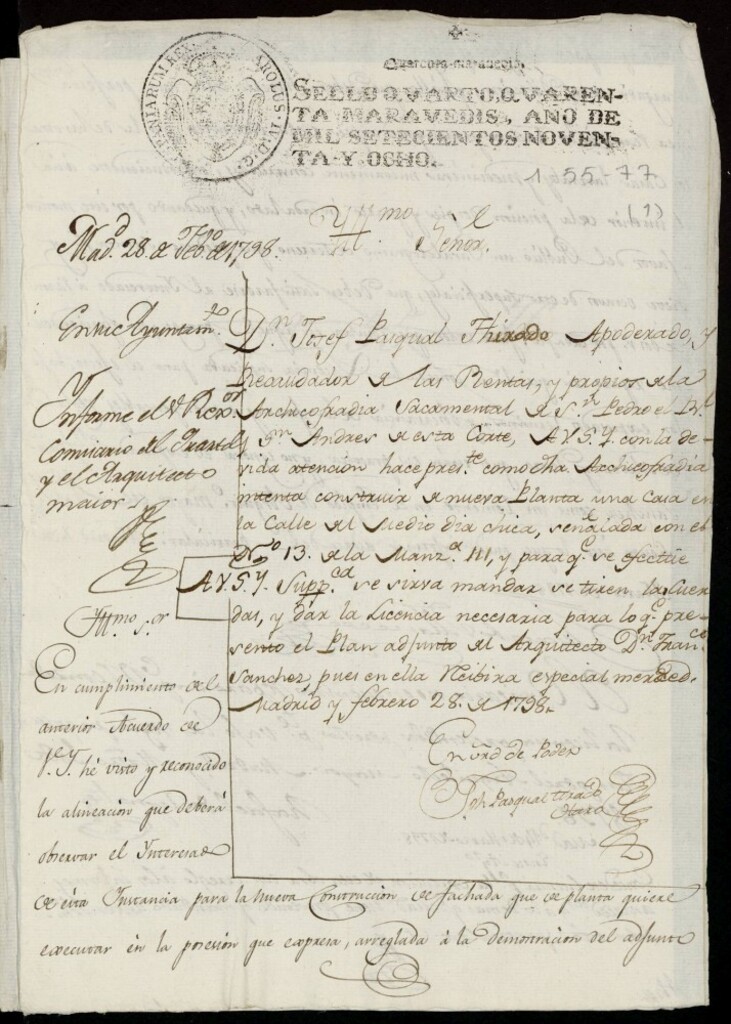 CAROLUS IV D.G. HISPANIARUM REX
Quarenta maravedis.
SELLO QVARTO, QVAREN-
TA MARAVEDIS, AÑO DE
MIL SETECIENTOS NOVEN-
TA Y OCHO.
1-55-77
(1)
Yllmo Señor.
Mad.d 28 de Feb.o de 1798.
En su Ayuntam.to
Ynforme el S.r Rexor
Comisario del Quartel
y el Arquitecto
maior.
D.n Josef Pasqual Thirado Apoderado, y
Recaudador de las Rentas, y propios de la
Archicofradia Sacramental de S.n Pedro el R.l
y S.n Andres de esta Corte, A V.S.Y. con la de-
vida atención hace pres.te como dha. Archicofradia
intenta construir de nueva Planta una Casa en
la Calle del Medio dia chica, señalada con el
N.o 13. de la Manz.a 111, y para q.e se efectúe
A V.S.Y. Supp.ca se sirva mandar se tiren las Cuer
das, y dar la Licencia necesaria para lo q.e pre-
sento el Plan adjunto del Arquitecto D.n Fran.co
Sanchez, pues en ella Recibira especial merzed.
Madrid y febrero 28. de 1798.
En vrd de Poder
Jph Pasqual thirado
Yllmo. S.or
En cumplimiento del
anterior Acuerdo de
V.S.Y. hé visto y reconocido
la alineacion que deberá
observar el Ynteresado
de esta Instancia para la nueva Contruccion de fachada que de planta quiere
executar en la posesion que expresa, arreglada á la demostracion del adjunto